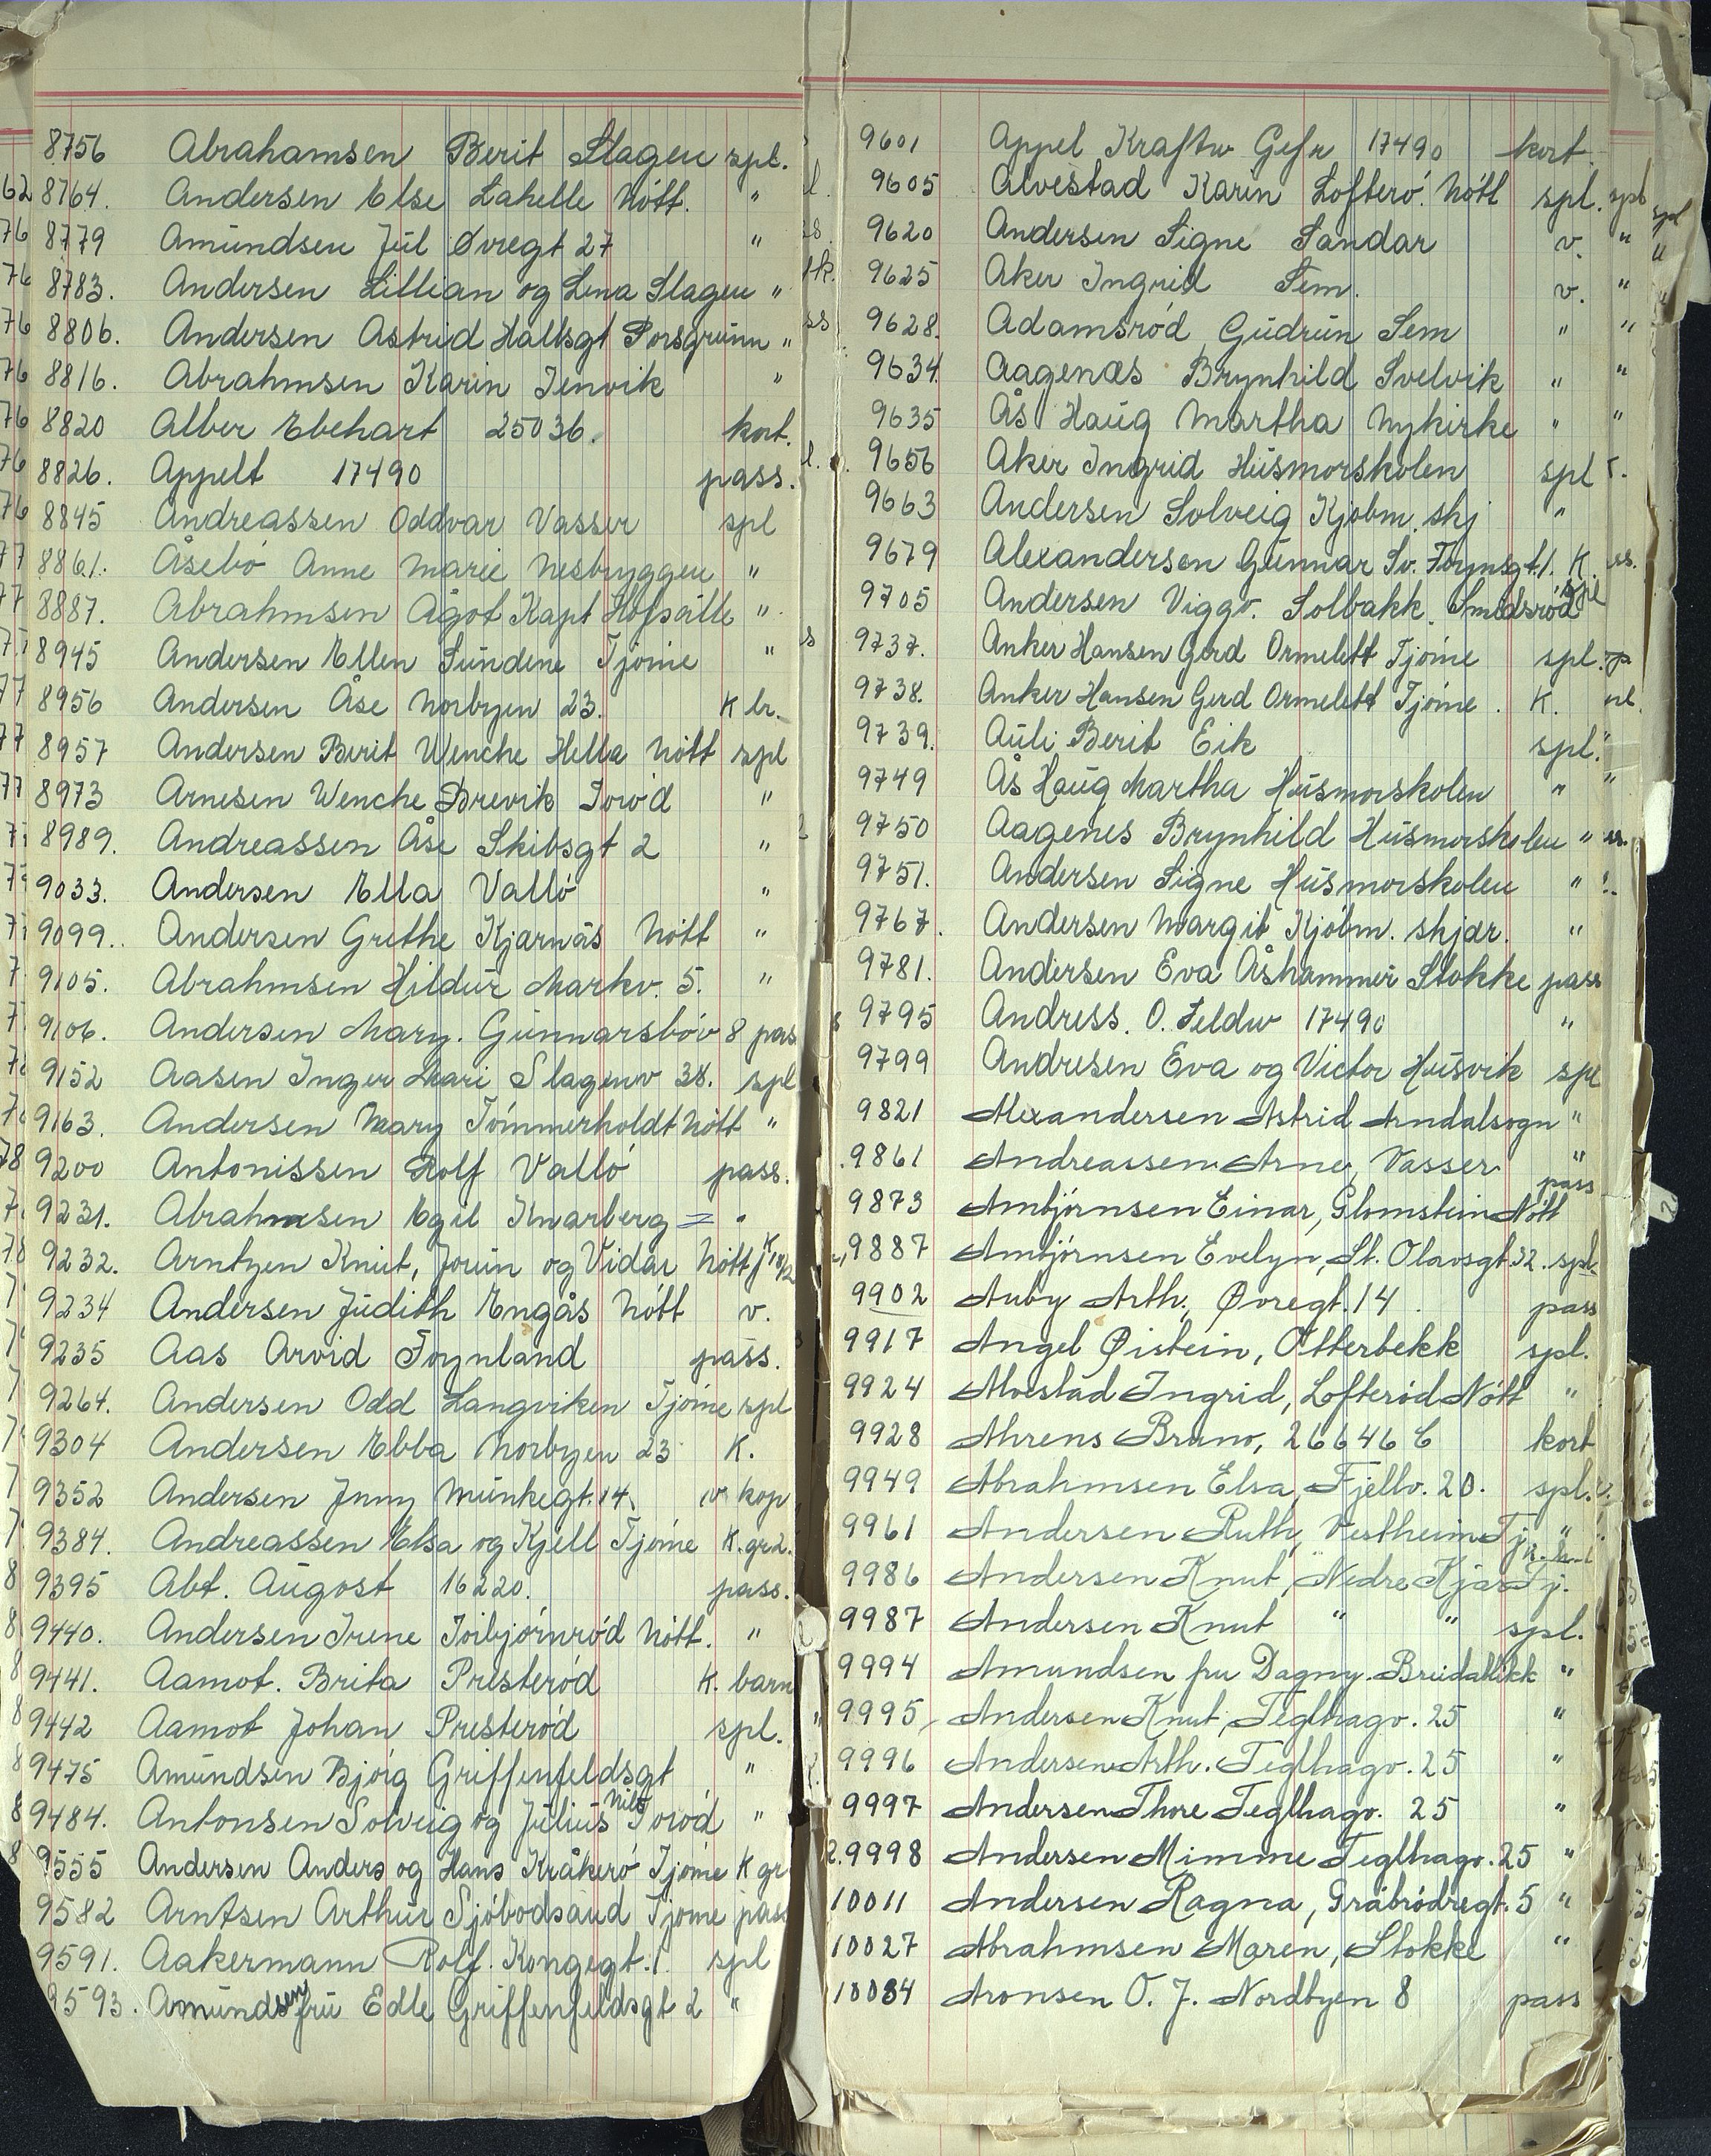 8756 Abrahamsen Berit Slagen spl.
8764. Andersen Else Lahelle Nött. "
8779 Amundsen Jul Øvregt 27 "
8783. Andersen Lillian og Lena Slagen "
8806. Andersen Astrid Hallsgt Porsgrunn "
8816. Abrahmsen Karin Jenvik "
8820 Alber Ebehart 25036. kort.
8826. Appelt 17490 pass.
8845 Andreassen Oddvar Vasser spl
8861. Åsebö Anne Marie Nesbryggen "
8887. Abrahmsen Ågot Kapt Hofsalle "
8945 Andersen Ellen Sundene Tjöme "
8956 Andersen Åse Norbyen 23. K br.
8957 Andersen Berit Wenche Hella Nött spl
8973 Arnesen Wenche Brevik Toröd "
8989. Andreassen Åse Skibsgt 2 "
9033. Andersen Ella Vallö "
9099. Andersen Grethe Kjærnäs Nött "
9105. Abrahmsen Hildur Markv. 5. "
9106. Andersen Mary. Gunnarsböv 8 pas
9152 Aasen Inger Mari Slagenv 38. spl
9163. Andersen Mary Tömmerholdt Nött "
9200 Antonissen Rolf Vallö pass.
9231. Abrahmsen Egil Knarberg = "
9232. Arntzen Knut, Jorun og Vidar Nött
9234 Andersen Judith Engås Nött v.
9235 Aas Arvid Foynland pass.
9264. Andersen Odd Langviken Tjöme spl
9304 Andersen Ebba Norbyen 23 K.
9352 Andersen Jenny Munkegt. 14. v kop
9384. Andreassen Elsa og Kjell Tjöme K. gr 2.
9395 Abt. August 16220. pass.
9440. Andersen Irene Torbjörnröd Nött. "
9441. Aamot. Brita Presteröd K. barn
9442 Aamot Johan Presteröd spl.
9475 Amundsen Bjorg Griffenfeldsgt "
9484. Antonsen Solveig og Julius Nils Toröd "
9555 Andersen Anders og Hans Kråkerö Tjöme K gr
9582 Arntsen Arthur Sjöbodsand Tjome pass
9591. Aakermann Rolf. Kongegt. 1. spl
9593. Amundsen fru Edle Griffenfeldsgt 2 "
9601 Appel Kraftw Gefr 17490 kort.
9605 Alvestad Karin Lofterö. Nött spl.
9620 Andersen Signe Sandar v.
9625 Aker Ingrid Sem. v.
9628. Adamsröd Gudrun Sem "
9634. Aagenæs Brynhild Svelvik "
9635 Ås Haug Martha Nykirke "
9656 Aker Ingrid Husmorskolen spl
9663 Andersen Solveig Kjöbm. skj "
9679 Alexandersen Gunnar Sv. Foynsgt. 1. K.
9705 Andersen Viggo. Solbakk. Smidsröd spl
9737. Anker Hansen Gerd Ormelett Tjöme spl.
9738. Anker Hansen Gerd Ormelett Tjöme. K.
9739. Auli Berit Eik spl.
9749 Ås Haug Martha Husmorskolen "
9750 Aagenes Brynhild Husmorskolen "
9751. Andersen Signe Husmorskolen "
9767. Andersen Margit Kjöbm. skjær. "
9781. Andersen Eva Åshammer Stokke pass
9795 Andress. O. Feldw 17490 "
9799 Andresen Eva og Victor Husvik spl
9821 Alexandersen Astrid Arndalsogn "
9861 Andreassen Arne, Vasser "
9873 Ambjörnsen Einar, Glomstein Nött pass
9887 Ambjörnsen Evelyn, St. Olavsgt 32. spl.
9902 Auby Arth. Øvregt. 14. pass
9917 Angel Øistein, Otterbekk spl.
9924 Alvestad Ingrid, Lofteröd Nött "
9928 Ahrens Bruno, 26646 C kort
9949 Abrahmsen Elsa, Fjellv. 20. spl.
9961 Andersen Ruth, Vestheim Tj "
9986 Andersen Knut, Nedre Kjær Tj.
9987 Andersen Knut " " spl.
9994 Amundsen fru Dagny. Breidablikk "
9995 Andersen Knut, Teglhagv. 25 "
9996 Andersen Arth. Teglhagv. 25 "
9997 Andersen Thore Teglhagv. 25 "
9998 Andersen Mimme Teglhagv. 25 "
10011 Andersen Ragna, Gråbrödregt. 5 "
10027 Abrahmsen Maren, Stokke "
10034 Aronsen O. J. Nordbyen 8 pass